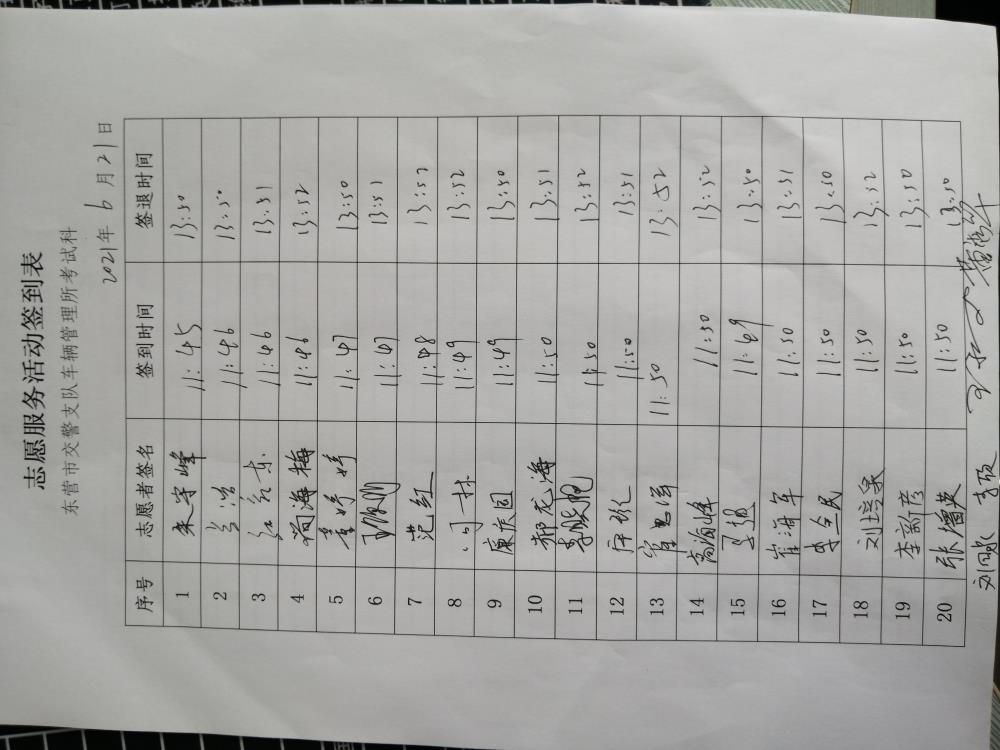 志愿服务活动签到表
东营市交警支队车辆管理所考试科
2021年 6月21日
序号 志愿者签名 签到时间 签退时间
1 朱守峰 11:45 13:50
2 11:46 13:50
3 11:46 13:51
4 海梅 11:46 13:52
5 董婷婷 11:47 13:50
6 11:47 13:51
7 范红 11:48 13:52
8 11:49 13:52
9 廉庆国 11:49 13:50
10 郝龙海 11:50 13:51
11 李晓鹏 11:50 13:52
12 11:50 13:51
13 11:50 13:52
14 高海峰 11:50 13:52
15 11:49 13:50
16 崔海军 11:50 13:51
17 李全民 11:50 13:50
18 刘培杲 11:50 13:52
19 李新彦 11:50 13:50
20 张儒英 11:50 13:50